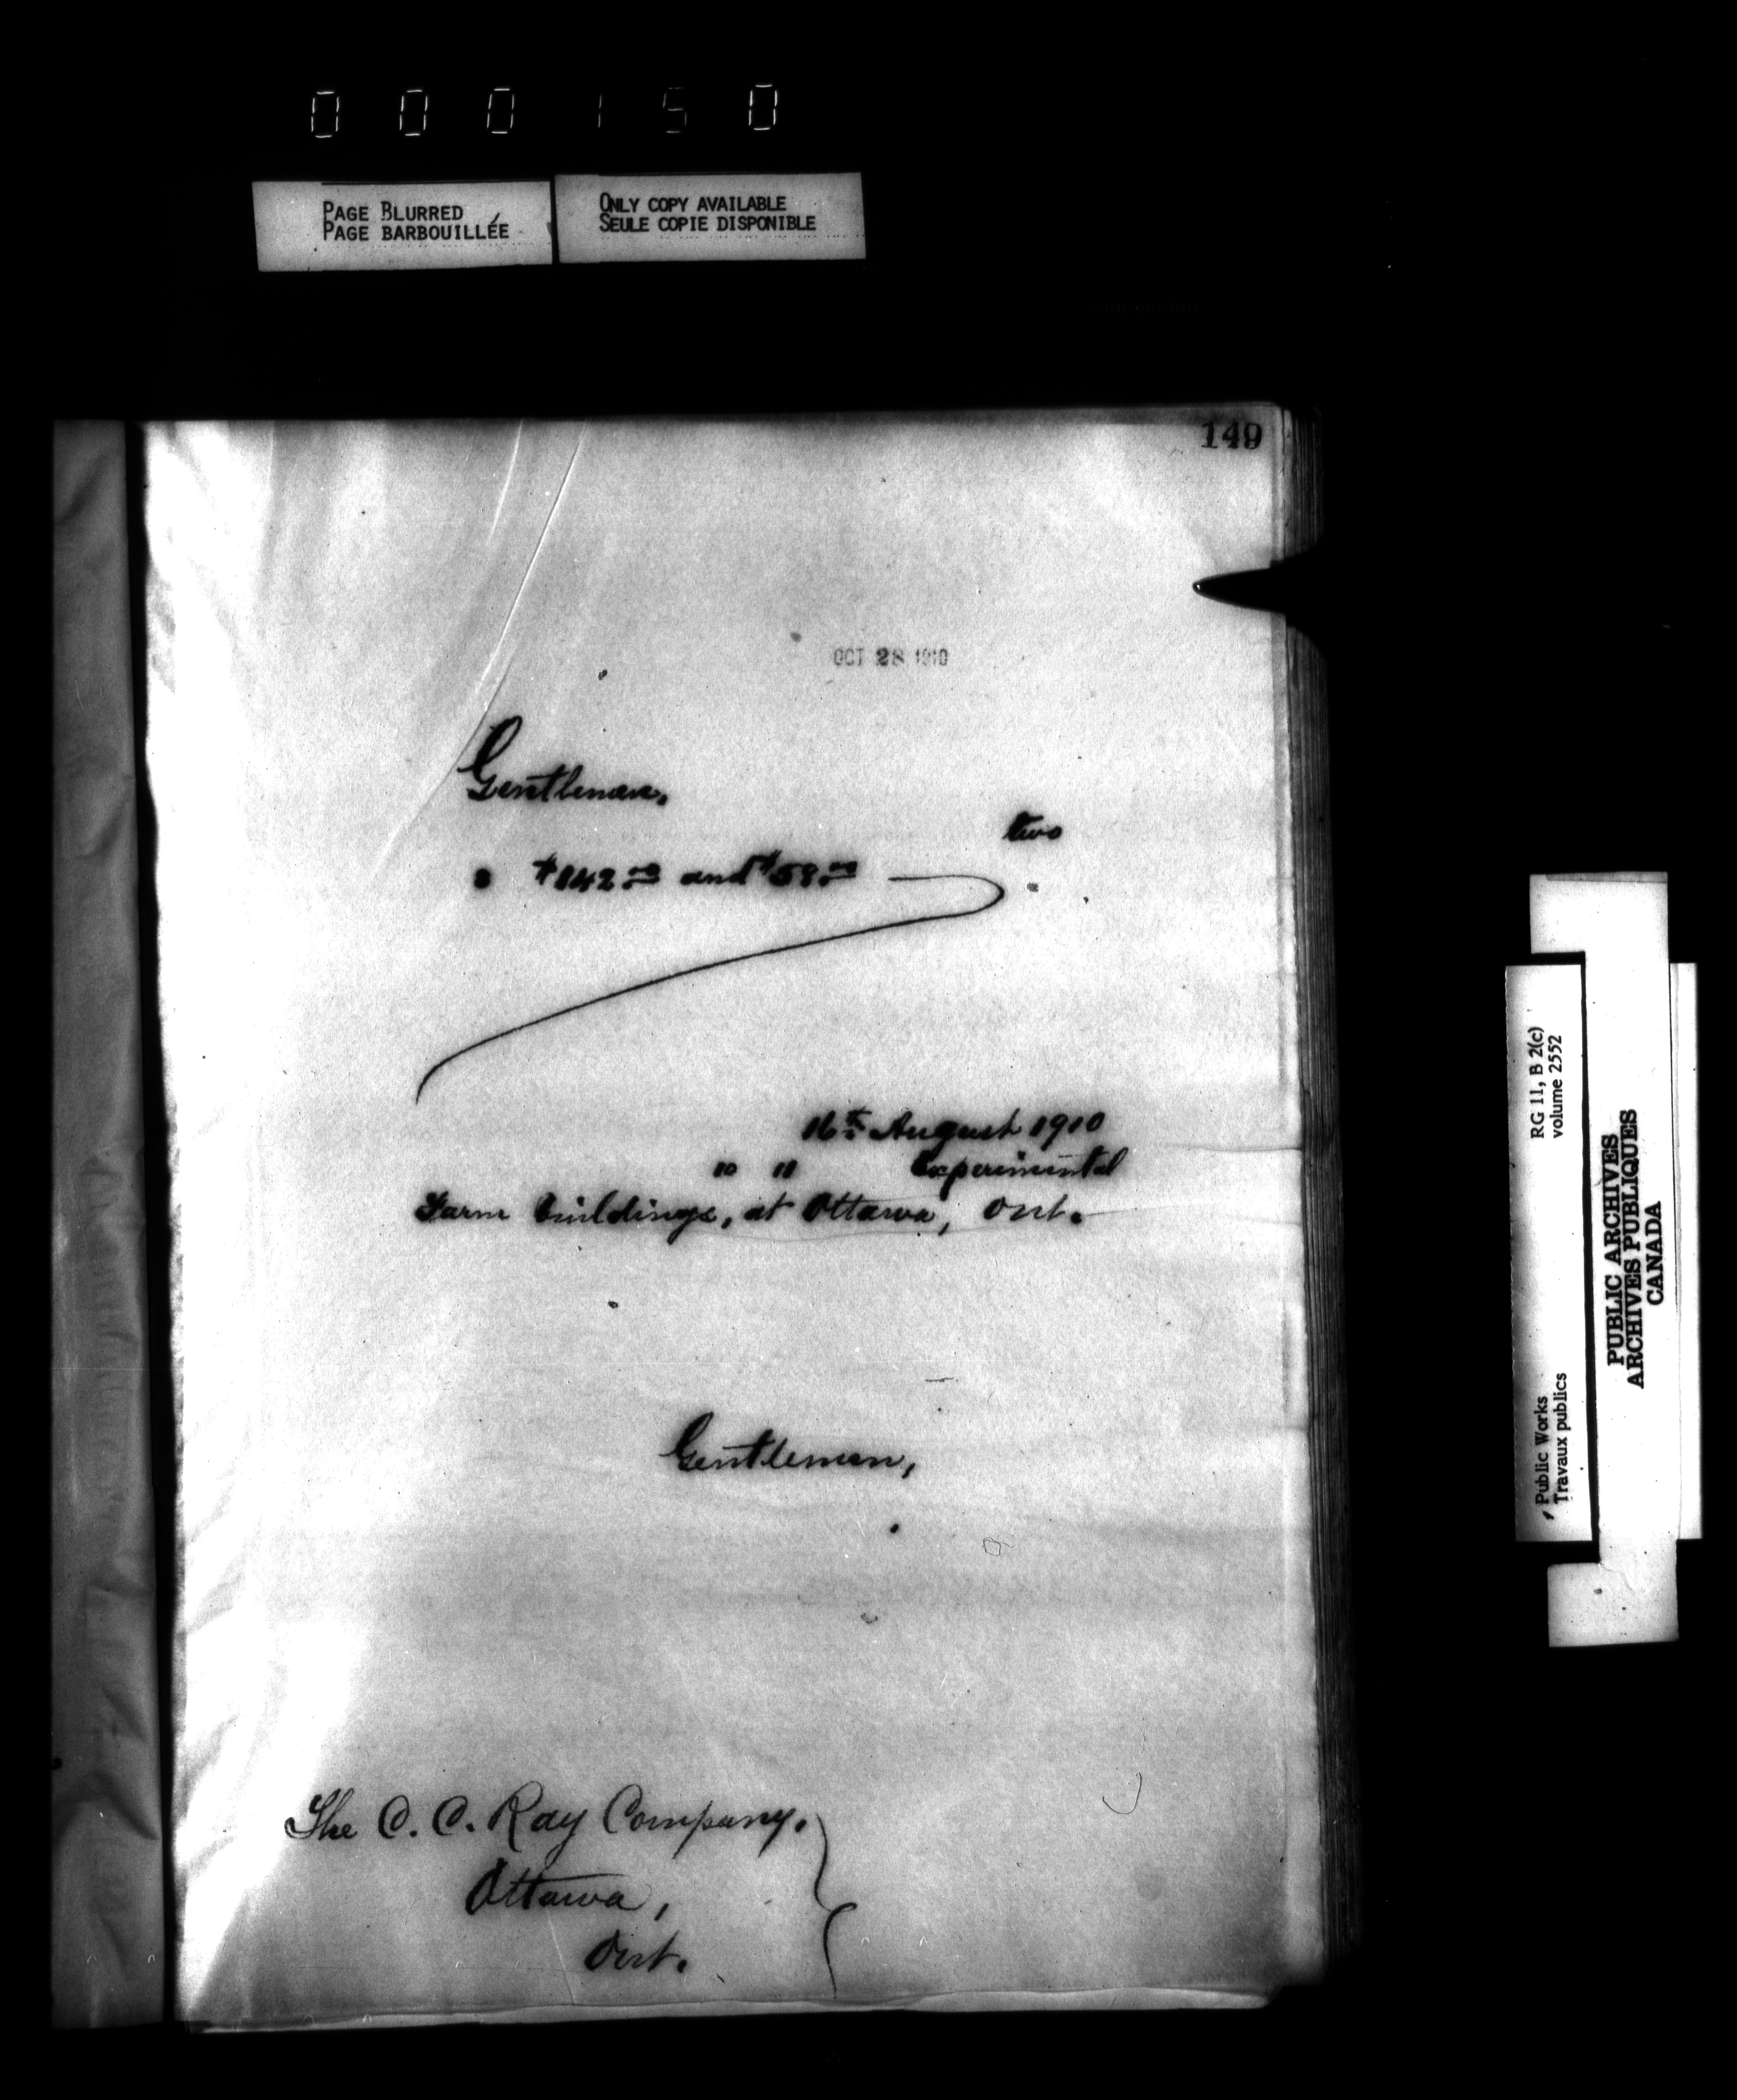 000150
PAGE BLURRED
PAGE BARBOUILLÉE
ONLY COPY AVAILABLE
SEULE COPIE DISPONIBLE
149
OCT 28 1910
Gentlemen,
two
s $842.00 and $59.00
16th August 1910
10 11 Experimental
Farm buildings, at Ottawa, Ont.
Gentlemen,
The C. C. Ray Company.
Ottawa,
Ont.
RG 11, B 2(c)
volume 2552
Public Works
Travaux publics
PUBLIC ARCHIVES
ARCHIVES PUBLIQUES
CANADA